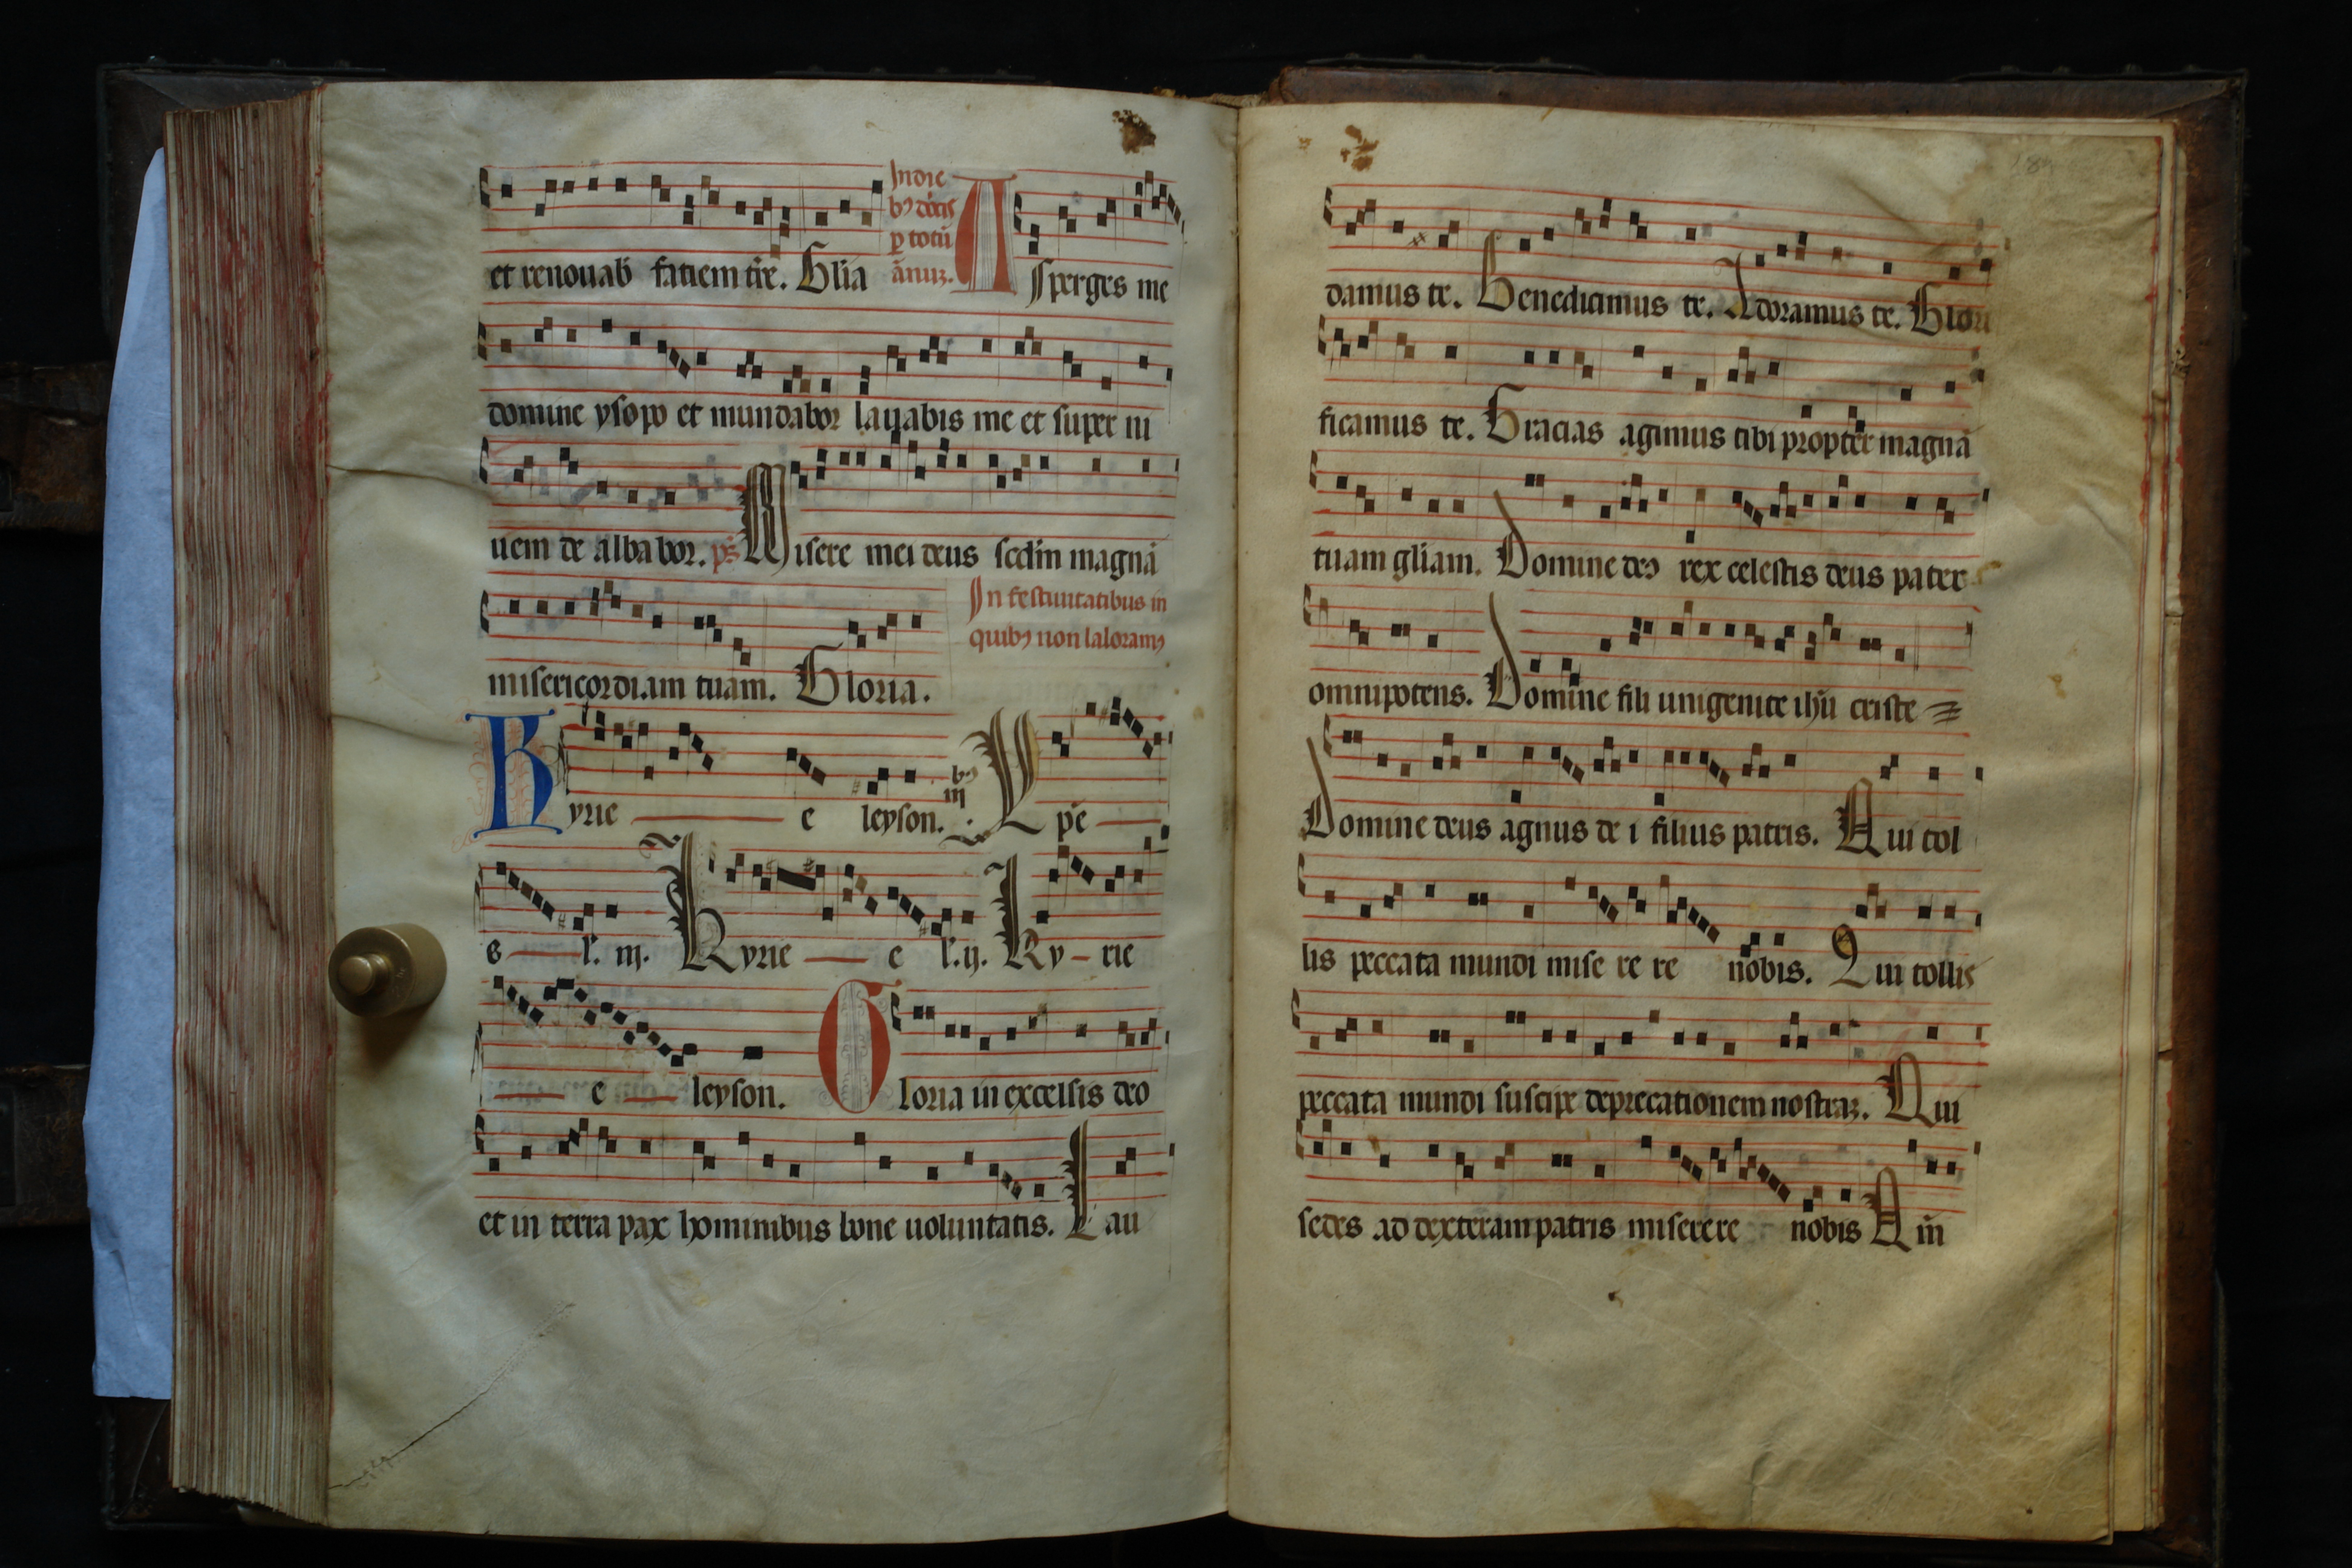 et renouab faciem tre. Glia
In die
bꝰ dn̄cis
ꝑ totū
ānuꝫ.
Asperges me
domine ysopo et mundabor lauabis me et super ni
uem de albabor. ps̄ Misere mei deus scdm̄ magnā
misericordiam tuam. Gloria.
In festiuitatibus in
quibꝰ non laboramꝰ
Kyrie e leyson. iij bꝰ Xpe
e l'. iij. Kyrie e l'. ij. Ky-rie
e leyson. Gloria in excelsis deo
et in terra pax hominibus bone uoluntatis. Lau
damus te. Benedicimus te. Adoramus te. Glori
ficamus te. Gracias agimus tibi propter magnā
tuam gliam. Domine deꝰ rex celestis deus pater
omnipotens. Domine fili unigenite ihū criste
Domine deus agnus de i filius patris. Qui tol
lis peccata mundi mise re re nobis. Qui tollis
peccata mundi suscipe deprecationem nostraꝫ. Qui
sedes ad dexteram patris miserere nobis Qm̄